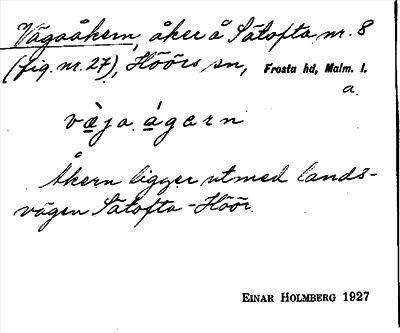 Vägaåkern, åker å Sätofta nr. 8
(fig. nr. 27), Höörs sn, Frosta hd, Malm. l.
a.
væja ágarn
Åkern ligger utmed lands-
vägen Sätofta - Höör.
EINAR HOLMBERG 1927